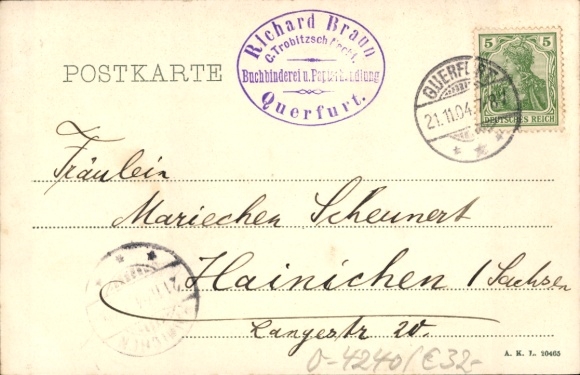 Richard Braun
C. Trobitzsch Nachf.
Buchbinderei u. Papierhandlung
Querfurt.
POSTKARTE
5
DEUTSCHES REICH
QUERFURT
21.11.04
Fräulein
Mariechen Scheunert
Hainichen / Sachsen
Langestr 20.
0-4240/€32-
A. K. L. 20465